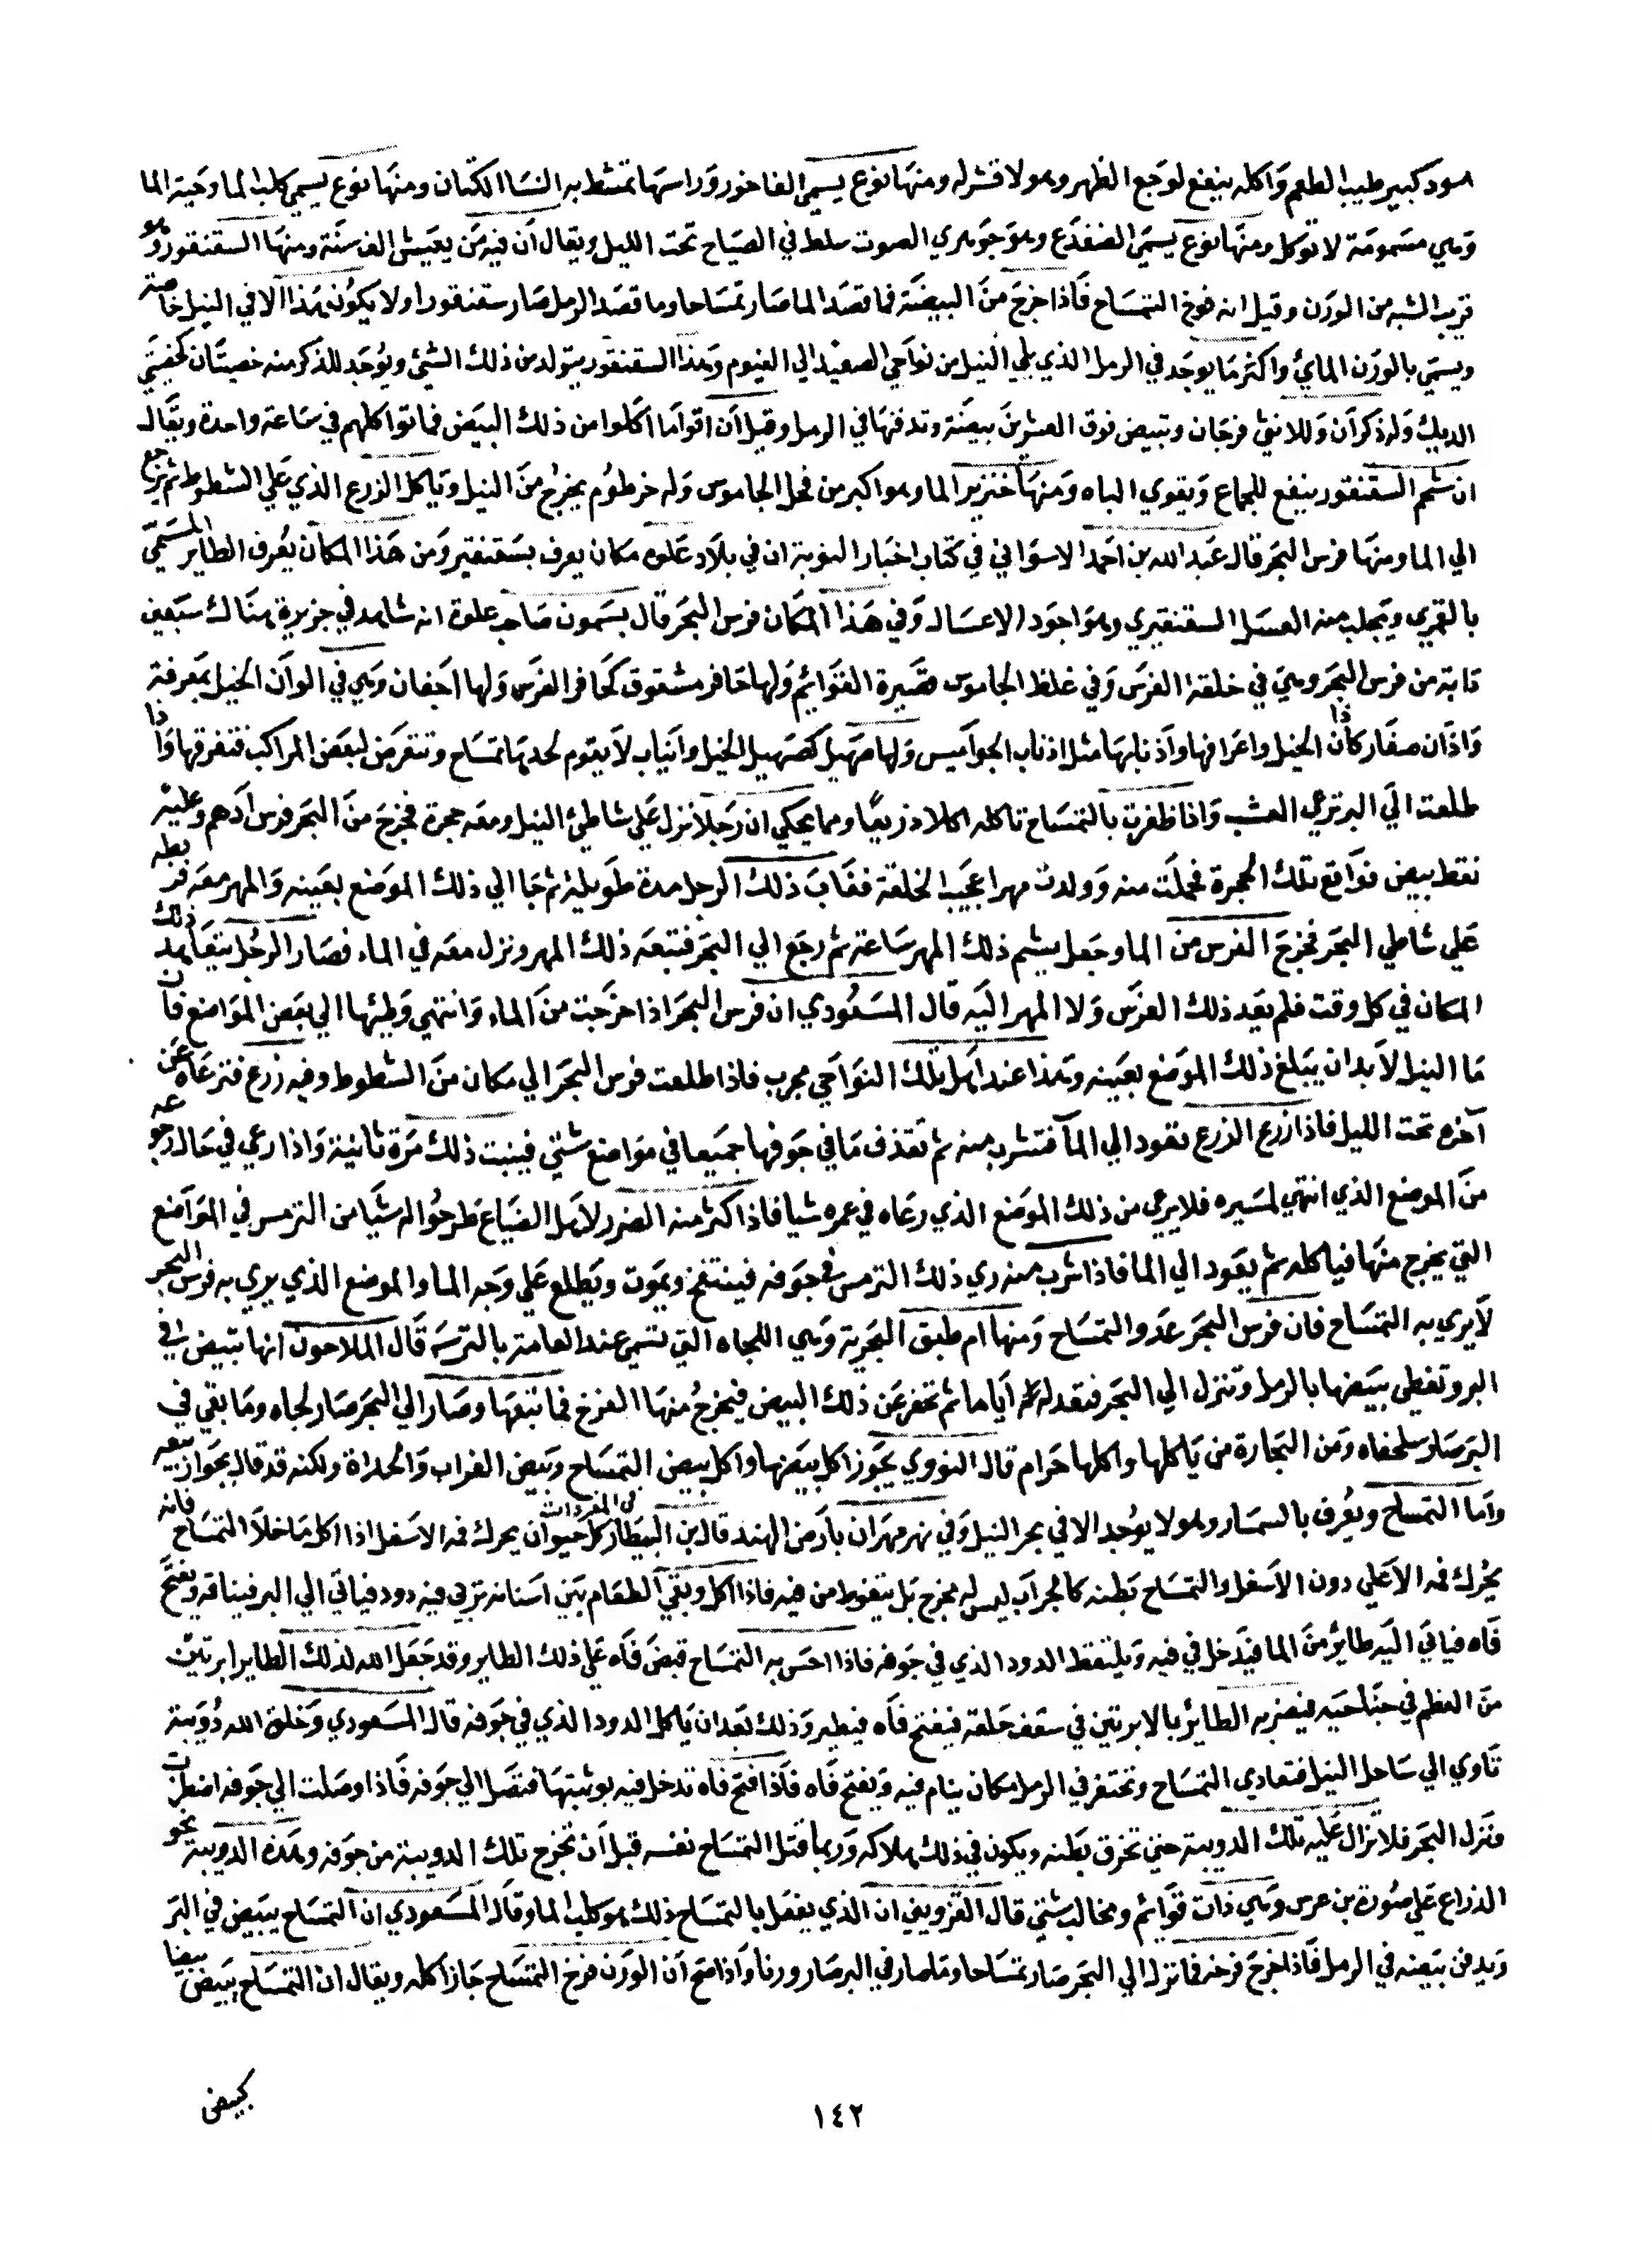 اسود كبير طيب الطعم واكله ينفع لوجع الظهر وهو لا قشر له ومنها نوع يسمى الفاخور وراسها تمشط به النسا الكتان ومنها نوع يسمي كلب الما وحية الما
وهي مسمومة لا توكل ومنها نوع يسمى الضفدع وهو جوهري الصوت سلط في الصياح تحت الليل ويقال ان فيه من يعيش الف سنة ومنها السقنقور وهو
قريب الشبه من الورن وقيل انه فرخ التمساح فاذا خرج من البيضة فما قصد الما صار تمساحا وما قصد الرمل صار سقنقورا ولا يكون هذا الا في النيل خاصة
ويسمي بالورن المائي واكثر ما يوجد في الرمل الذي يلي النيل من نواحي الصعيد الي الفيوم وهذا السقنقور يتولد من ذلك الشئ ويوجد للذكر منه خصيتان كخصيتي
الديك وله ذكران وللانثى فرجان وتبيض فوق العشرين بيضة وتدفنها في الرمل وقيل ان اقواما اكلوا من ذلك البيض فماتوا كلهم في ساعة واحدة ويقال
ان شحم السقنقور ينفع للجماع ويقوي الباه ومنها خنزير الما وهو اكبر من فحل الجاموس وله خرطوم يخرج من النيل وياكل الزرع الذي علي الشطوط ثم يرجع
الي الما ومنها فرس البحر قال عبد الله بن احمد الاسواني في كتاب اخبار النوبة ان في بلاد علوه مكان يعرف بسقنقير ومن هذا المكان يعرف الطاير المسمي
بالقمري ويجلب منه العسل السقنقيري وهو اجود الاعسال وفي هذا المكان فرس البحر قال بسمون صاحب علوة انه شاهد في جزيرة هناك سبعين
دابة من فرس البحر وهي في خلقة الفرس وفي غلظ الجاموس قصيرة القوائم ولها حافر مشقوق كحافر الفرس ولها اجفان وهي في الوان الخيل بمعرفة
واذان صغار كاذان الخيل واعرافها واذنابها مثل اذناب الجواميس ولها صهيل كصهيل الخيل وانياب لا يقوم لحدها تمساح وتتعرض لبعض المراكب فتغرقها واذا
طلعت الي البر ترعي العشب واذا ظفرت بالتمساح تاكله اكلا ذريعا ومما يحكي ان رجلا نزل علي شاطئ النيل ومعه حجرة فخرج من البحر فرس ادهم وعليه
نقط بيض فواقع تلك الحجرة فحملت منه وولدت مهرا عجيب الخلقة فغاب ذلك الرجل مدة طويلة ثم جا الي ذلك الموضع بعينه والمهر معه فربطه
علي شاطي البحر فخرج الفرس من الما وجعل يشم ذلك المهر ساعة ثم رجع الي البحر فتبعه ذلك المهر ونزل معه في الماء فصار الرجل يتعاهد ذلك
المكان في كل وقت فلم يعد ذلك الفرس ولا المهر اليه قال المسعودي ان فرس البحر اذا خرجت من الماء وانتهي وطئها الي بعض المواضع فان
ما النيل لا بد ان يبلغ ذلك الموضع بعينه وهذا عند اهل تلك النواحي مجرب فاذا طلعت فرس البحر الي مكان من الشطوط وفيه زرع فترعاه عن
آخره تحت الليل فاذا زرع الزرع تعود الي الما فتشرب منه ثم تقذف ما في جوفها جميعا في مواضع شتي فينبت ذلك مرة ثانية واذا رعي في حال رجوعه
من الموضع الذي انتهي لمسيره فلا يرعي من ذلك الموضع الذي رعاه في عمره شيا فاذا كثر منه الضرر لاهل الضياع طرحوا له شيا من الترمس في المواضع
التي يخرج منها فياكله ثم يعود الي الما فاذا شرب منه ربي ذلك الترمس في جوفه فينتفخ ويموت ويطلع علي وجه الما والموضع الذي يري به فرس البحر
لا يري به التمساح فان فرس البحر عدو التمساح ومنها ام طبق البحرية وهي اللجاه التي تسمي عند العامة بالترسه قال الملاحون انها تبيض في
البر وتغطي بيضها بالرمل وتنزل الي البحر فتقعد له اياما ثم تحفر عن ذلك البيض فيخرج منها الفرخ فما تبعها وصار الي البحر صار لجاه وما بقي في
البر صار سلحفاه ومن البحارة من ياكلها واكلها حرام قال النووي يجوز اكل بيضها واكل بيض التمساح وبيض الغراب والحداة ولكنه قد قال بجواز بيعه
واما التمساح ويعرف بالسمسار وهو لا يوجد الا في بحر النيل وفي نهر مهران بارض الهند قال بن البيطار في المفردات كل حيوان يحرك فمه الاسفل اذا اكل ما خلا التمساح فانه
يحرك فمه الاعلي دون الاسفل والتمساح بطنه كالجراب ليس له مخرج بل يتغوط من فيه فاذا اكل وبقي الطعام بين اسنانه تربي فيه دود فياتي الي البر فيناقه ويفتح
فاه فياتي اليه طاير من الما فيدخل في فيه ويلتقط الدود الذي في جوفه فاذا احس به التمساح قبض فاه علي ذلك الطاير وقد جعل الله لذلك الطاير ابرتين
من العظم في جناحيه فيضربه الطاير بالابرتين في سقف حلقه فيفتح فاه فيطير وذلك بعد ان ياكل الدود الذي في جوفه قال المسعودي وخلق الله دويبة
تاوي الي ساحل النيل فتعادي التمساح وتحتفر في الرمل مكان ينام فيه ويفتح فاه فاذا فتح فاه تدخل فيه بوثبتها فتصل الي جوفه فاذا وصلت الي جوفه اضطرب
ونزل البحر فلا تزال عليه تلك الدويبة حتي تخرق بطنه ويكون في ذلك هلاكه وربما قتل التمساح نفسه قبل ان تخرج تلك الدويبة من جوفه وهذه الدويبة نحو
الذراع علي صورة بن عرس وهي ذات قوائم ومخالب شتي قال القزويني ان الذي يفعل بالتمساح ذلك هو كلب الما وقال المسعودي ان التمساح يبيض في البر
ويدفن بيضه في الرمل فاذا خرج فرخه فما نزل الي البحر صار تمساحا وما صار في البر صار ورنا واذا صح ان الورن فرخ التمساح جاز اكله ويقال ان التمساح يبيض بيضا
كبيض
١٤٢